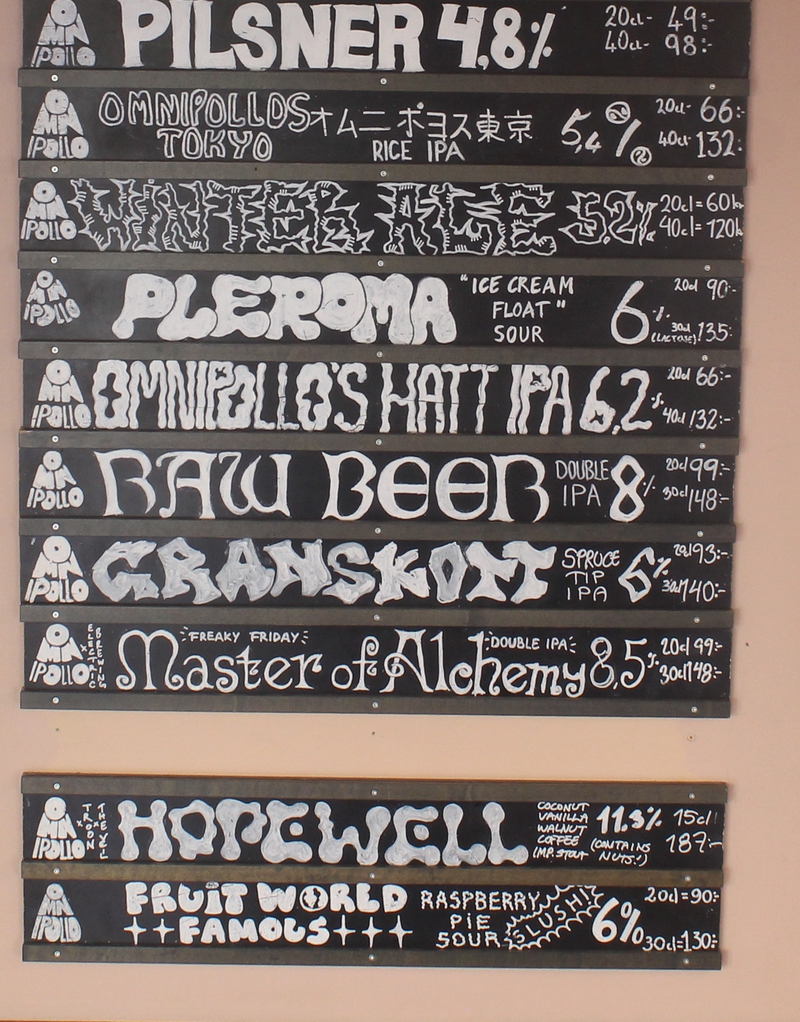 OMNIPOLLO PILSNER 4,8% 20cl- 49:-
40cl- 98:-
OMNIPOLLO OMNIPOLLOS TOKYO オムニポヨス東京 RICE IPA 5,4% 20cl- 66:-
40cl- 132:-
OMNIPOLLO WINTER ALE 5,2% 20cl= 60k
40cl= 120k
OMNIPOLLO PLEROMA "ICE CREAM FLOAT" SOUR 6% (LACTOSE) 20cl 90:-
30cl 135:-
OMNIPOLLO OMNIPOLLO'S HATT IPA 6,2% 20cl 66:-
40cl 132:-
OMNIPOLLO RAW BEER DOUBLE IPA 8% 20cl 99:-
30cl 148:-
OMNIPOLLO GRANSKOTT SPRUCE TIP IPA 6% 20cl 93:-
30cl 140:-
OMNIPOLLO x ELECTRIC BREWING FREAKY FRIDAY Master of Alchemy DOUBLE IPA 8,5% 20cl 99:-
30cl 148:-
OMNIPOLLO x TROON x THE VEIL HOPEWELL COCONUT VANILLA WALNUT COFFEE IMP. STOUT 11.3% (CONTAINS NUTS!) 15cl
187:-
OMNIPOLLO FRUIT WORLD FAMOUS RASPBERRY PIE SOUR SLUSH! 6% 20cl=90:-
30cl=130:-